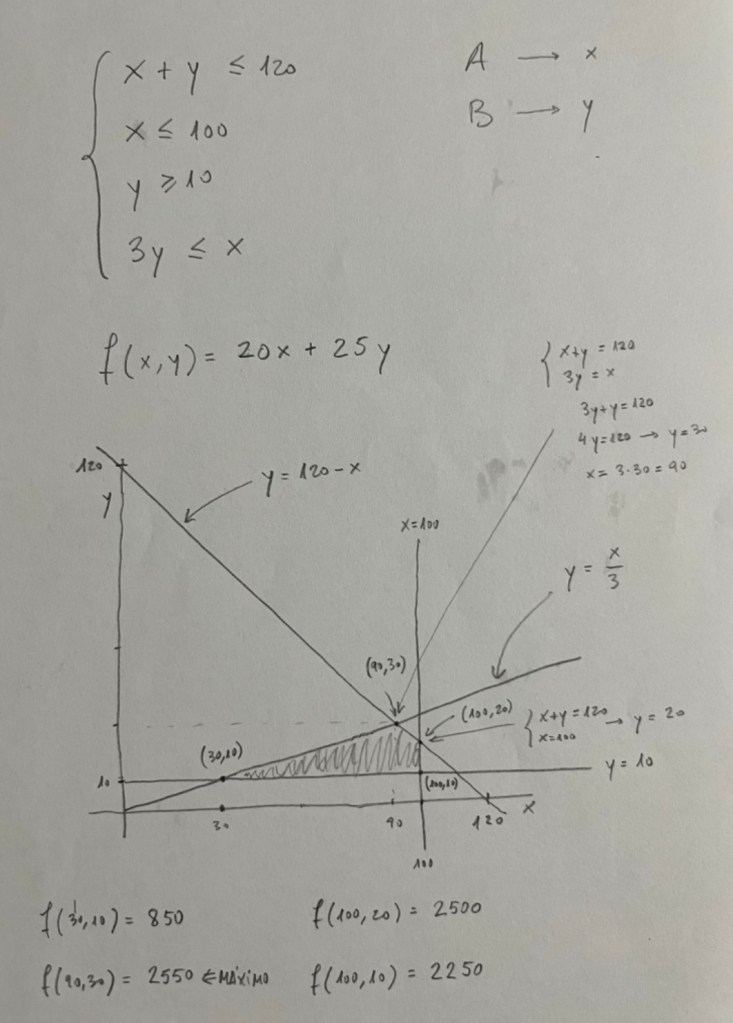 x + y ≤ 120
x ≤ 100
y ≥ 10
3y ≤ x
A → x
B → y
f(x,y) = 20x + 25y
x+y = 120
3y = x
3y+y=120
4y=120 → y=30
x = 3·30 = 90
120
y
y = 120 - x
x=100
y = x/3
(90,30)
(100,20)
x+y=120 → y = 20
x=100
(30,10)
10
(100,10)
y = 10
30
90
120
x
100
f(30,10) = 850
f(100,20) = 2500
f(90,30) = 2550 ⇐ MÁXIMO
f(100,10) = 2250